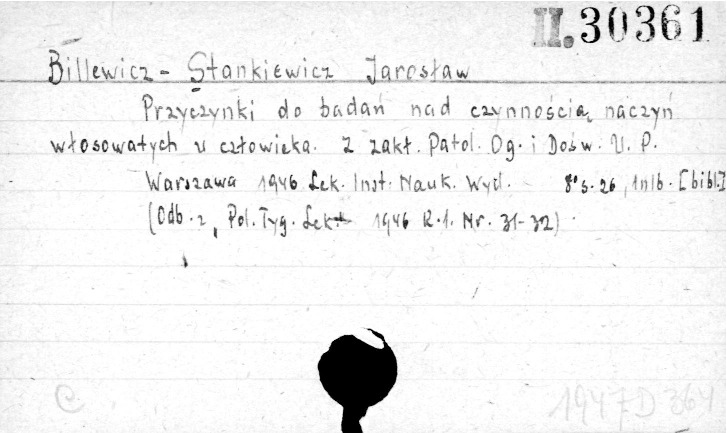 II.30361
Billewicz - Stankiewicz Jarosław
Przyczynki do badań nad czynnością naczyń
włosowatych u człowieka. Z zakł. Patol. Og. i Dośw. U. P.
Warszawa 1946 Lek. Inst. Nauk. Wyd. 8° s. 26, 1 nlb. [bibl.]
(Odb. z, Pol. Tyg. Lek. 1946 R.1. Nr. 31-32)
C 1947 D 364